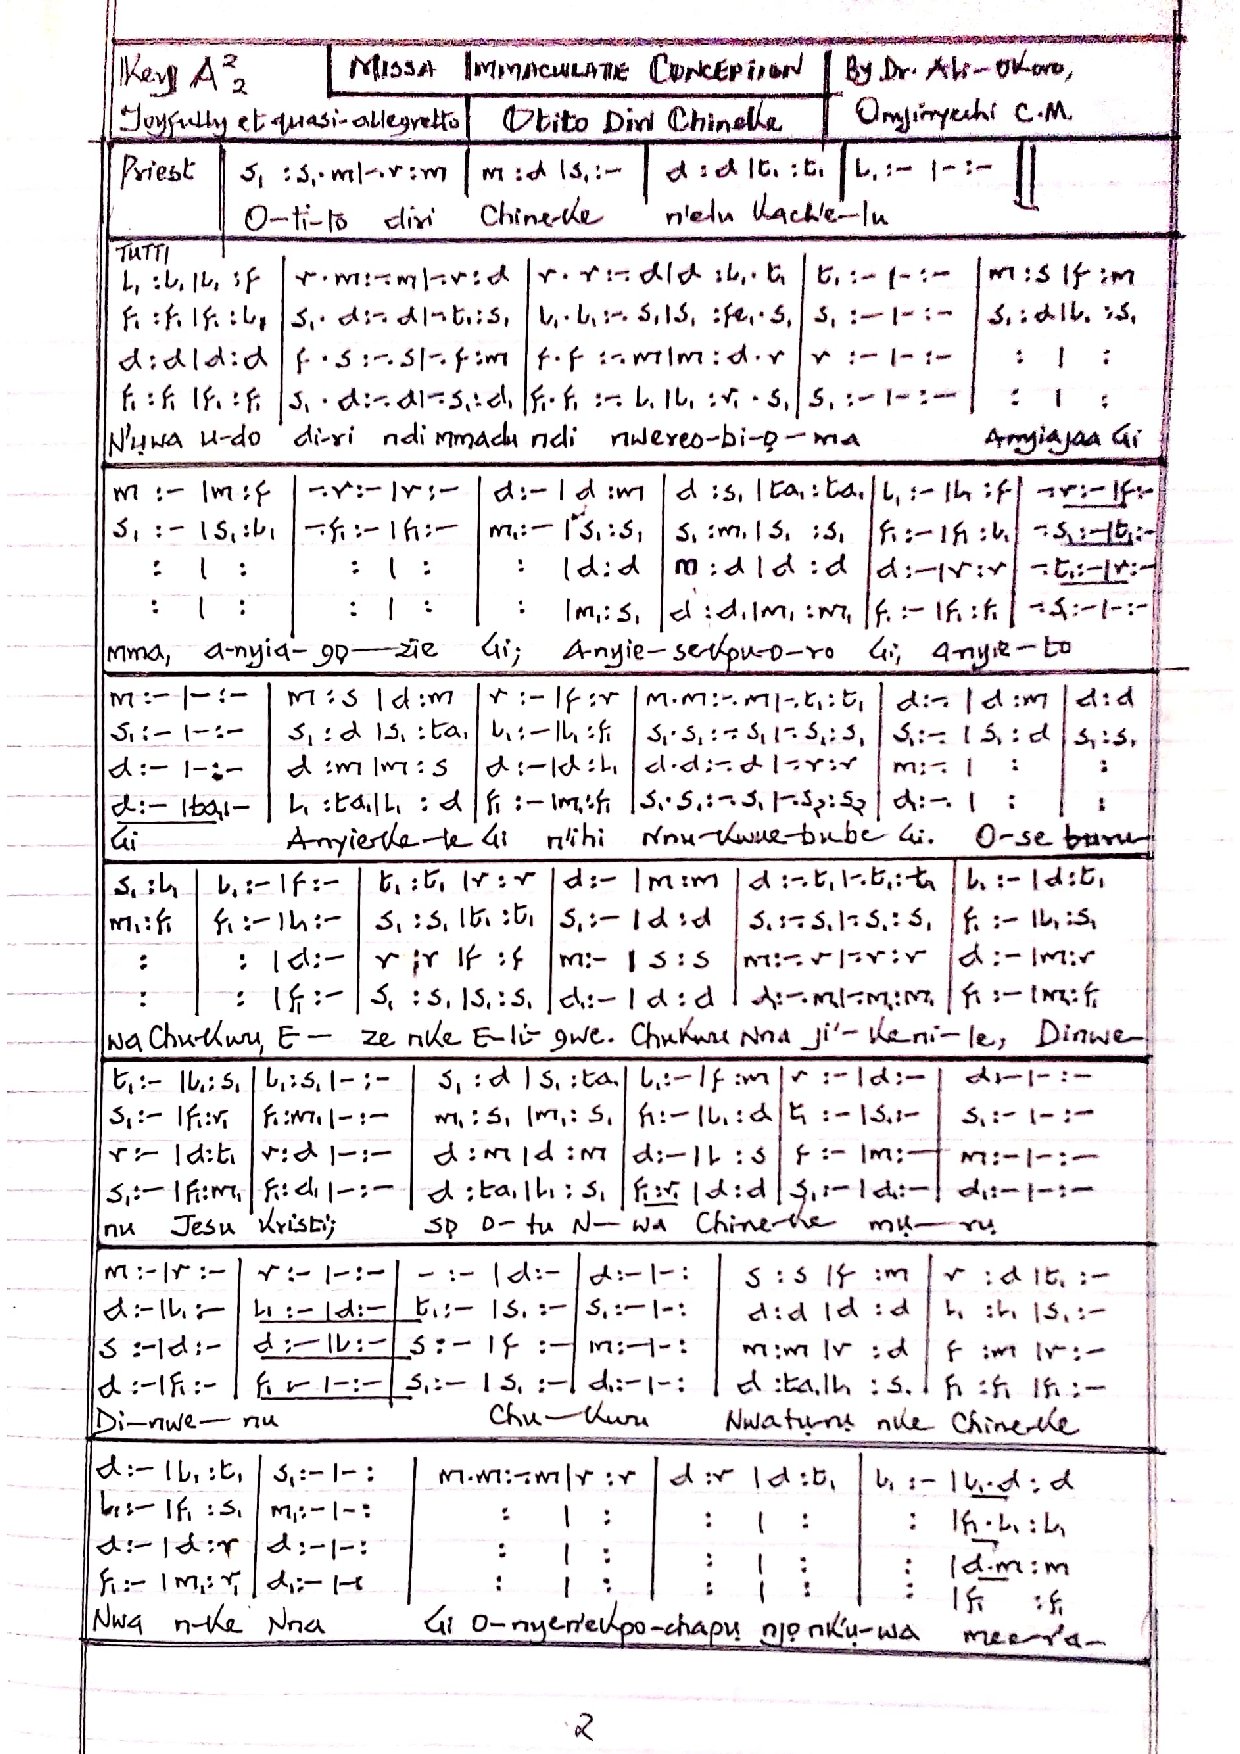 Key A 2 2
MISSA IMMACULATE CONCEPTION
By Dr. Ali-Okoro,
Joyfully et quasi-allegretto
Otito Diri Chineke
C.M.
Priest
s₁ :s₁.m|-.r:m | m :d |s₁:- | d :d |t₁ :t₁ | l₁ :- |- :- ||
O-ti-to diri Chine-ke n'elu Kach'e-lu
TUTTI
l₁ :l₁ |l₁ :f | r.m:-.m|-.r:d | r.r:-.d|d :l₁.t₁ | t₁ :- |- :- | m :s |f :m
f₁ :f₁ |f₁ :l₁ | s₁.d:-.d|-.t₁:s₁ | l₁.l₁:-.s₁|s₁ :fe₁.s₁ | s₁ :- |- :- | s₁ :d |l₁ :s₁
d :d |d :d | f.s:-.s|-.f:m | f.f:-.m|m :d.r | r :- |- :- | : | :
f₁ :f₁ |f₁ :f₁ | s₁.d:-.d|-.s₁:d₁ | f₁.f₁:-.l₁|l₁ :r₁.s₁ | s₁ :- |- :- | : | :
N'ụwa u-do di-ri ndi mmadu ndi nwereo-bi-ọ-ma Anyiajaa Gi
m :- |m :f | -.r:- |r :- | d :- |d :m | d :s₁ |ta₁ :ta₁ | l₁ :- |l₁ :f | -.r:- |f :-
s₁ :- |s₁ :l₁ | -.f₁:- |f₁ :- | m₁ :- |s₁ :s₁ | s₁ :m₁ |s₁ :s₁ | f₁ :- |f₁ :l₁ | -.s₁:- |t₁ :-
: | : | : | : | : |d :d | m :d |d :d | d :- |r :r | -.t₁:- |r :-
: | : | : | : | : |m₁ :s₁ | d :d₁ |m₁ :m₁ | f₁ :- |f₁ :f₁ | -.s₁:- |- :-
mma, a-nyia-gọ-zie Gi; Anyie-sekpu-o-ro Gi, anyie-to
m :- |- :- | m :s |d :m | r :- |f :r | m.m:-.m|-.t₁:t₁ | d :-. |d :m | d :d
s₁ :- |- :- | s₁ :d |s₁ :ta₁ | l₁ :- |l₁ :f₁ | s₁.s₁:-.s₁|-.s₁:s₁ | s₁ :-. |s₁ :d | s₁ :s₁
d :- |- :- | d :m |m :s | d :- |d :l₁ | d.d:-.d|-.r:r | m :-. | : | :
d :- |ta₁ :- | l₁ :ta₁ |l₁ :d | f₁ :- |m₁ :f₁ | s₁.s₁:-.s₁|-.s₂:s₂ | d₁ :-. | : | :
Gi Anyieke-le Gi n'ihi Nnu-kwue-bube Gi. O-se buru
s₁ :l₁ | l₁ :- |f :- | t₁ :t₁ |r :r | d :- |m :m | d :-.t₁|-.t₁:t₁ | l₁ :- |d :t₁
m₁ :f₁ | f₁ :- |l₁ :- | s₁ :s₁ |t₁ :t₁ | s₁ :- |d :d | s₁ :-.s₁|-.s₁:s₁ | f₁ :- |l₁ :s₁
: | : |d :- | r :r |f :f | m :- |s :s | m :-.r|-.r:r | d :- |m :r
: | : |f₁ :- | s₁ :s₁ |s₁ :s₁ | d₁ :- |d :d | d₁ :-.m₁|-.m₁:m₁ | f₁ :- |m₁ :f₁
wa Chu-kwu, E- ze nke E-li-gwe. Chukwu Nna ji'-keni-le, Dinwe-
t₁ :- |l₁ :s₁ | l₁ :s₁ |- :- | s₁ :d |s₁ :ta₁ | l₁ :- |f :m | r :- |d :- | d :- |- :-
s₁ :- |f₁ :r₁ | f₁ :m₁ |- :- | m₁ :s₁ |m₁ :s₁ | f₁ :- |l₁ :d | t₁ :- |s₁ :- | s₁ :- |- :-
r :- |d :t₁ | r :d |- :- | d :m |d :m | d :- |l :s | f :- |m :- | m :- |- :-
s₁ :- |f₁ :m₁ | f₁ :d₁ |- :- | d :ta₁ |l₁ :s₁ | f₁ :r₁ |d :d | s₁ :- |d₁ :- | d₁ :- |- :-
nu Jesu Kristi; sọ o-tu N-wa Chine-ke mụ-rụ
m :- |r :- | r :- |- :- | - :- |d :- | d :- |- : | s :s |f :m | r :d |t₁ :-
d :- |l₁ :- | l₁ :- |d :- | t₁ :- |s₁ :- | s₁ :- |- : | d :d |d :d | l₁ :l₁ |s₁ :-
s :- |d :- | d :- |l :- | s :- |f :- | m :- |- : | m :m |r :d | f :m |r :-
d :- |f₁ :- | f₁ :- |- :- | s₁ :- |s₁ :- | d₁ :- |- : | d :ta₁ |l₁ :s₁ | f₁ :f₁ |f₁ :-
Di-nwe-nu Chu-kwu Nwatụrụ nke Chine-ke
d :- |l₁ :t₁ | s₁ :- |- : | m.m:-.m|r :r | d :r |d :t₁ | l₁ :- |l₁.d :d
l₁ :- |f₁ :s₁ | m₁ :- |- : | : | : | : | : | : |f₁.l₁ :l₁
d :- |d :r | d :- |- : | : | : | : | : | : |d.m :m
f₁ :- |m₁ :r₁ | d₁ :- |- : | : | : | : | : | : |f₁ :f₁
Nwa n-ke Nna Gi o-nyen'ekpo-chapụ njọ nk'ụ-wa mee-r'a-
2